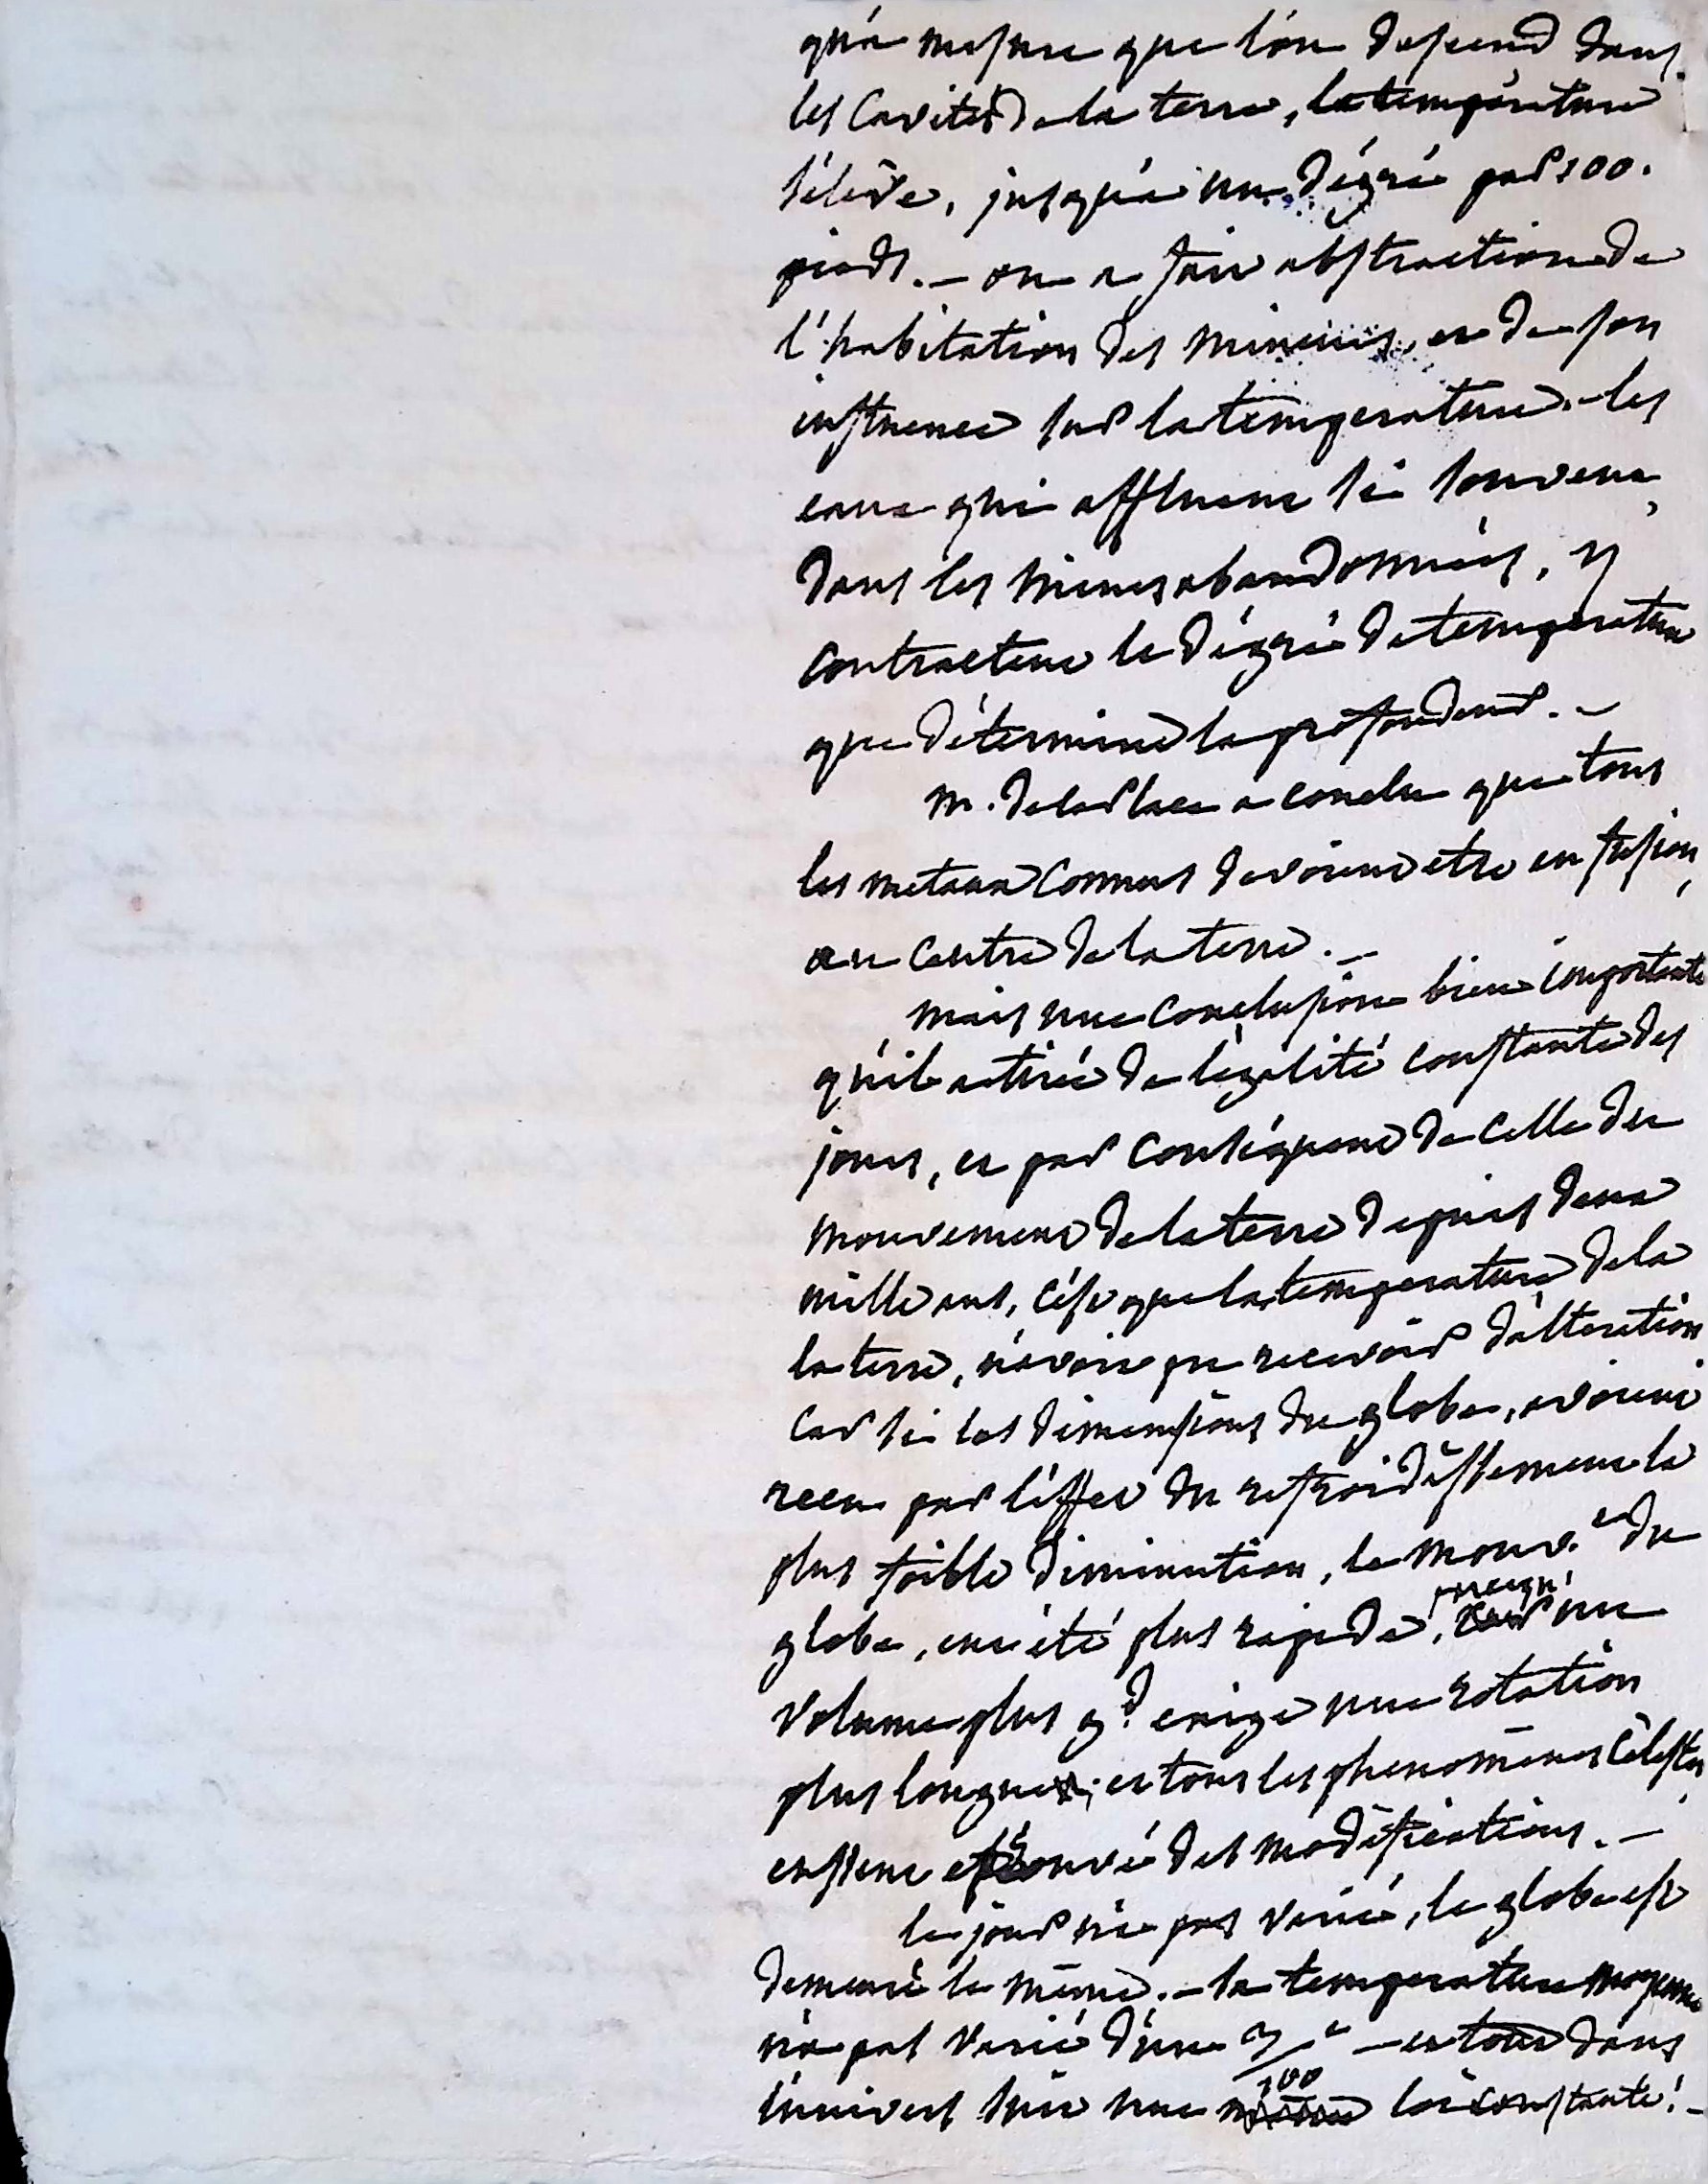 qu'a mesure que l'on descend dans
les Cavités de la terre, la température
s'éléve, jusqu'a un dégré par 100.
pieds. — on a fait abstraction de
l'habitation des mineurs, et de son
influence sur la temperature. — les
eaux qui affluent si souvent
dans les mines abandonnées, y
contractent le dégré de temperature
que détermine la profondeur. —
m. de la Place a conclu que tous
les metaux connus devoient etre en fusion,
au centre de la terre. —
mais une conclusion bien importante
qu'il a tirée de l'égalité constante des
jours, et par conséquent de celle du
mouvement de la terre depuis deux
mille ans, c'est que la temperature de la
la terre, n'avoit pu recevoir d'altération
car si les dimensions du globe, avoient
recu par l'effet du refroidissement la
plus foible diminution, le mouv.ent du
globe, eut été plus rapide, car puisqu' un
volume plus gd. exige une rotation
plus longue; et tous les phenoménes célestes
eussent éprouvé des modifications. —
le jour n'a pas varié, le globe est
demeuré le même. — la temperature moyenne
n'a pas varié d'un 1/100e — et tout dans
l'univers suit une loi constante! —